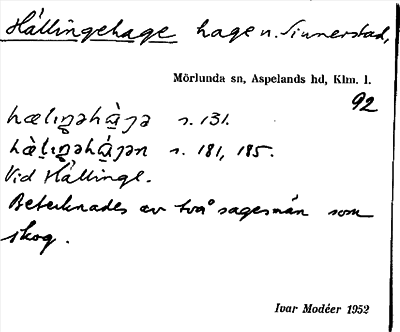 Hällingehage hage n. Sinnerstad,
Mörlunda sn, Aspelands hd, Klm. l.
92
hælıŋəhàɟə s. 131.
hæ̀lıŋəháɟən s. 181, 185.
Vid Hällinge.
Betecknades av två sagesmän som
skog.
Ivar Modéer 1952